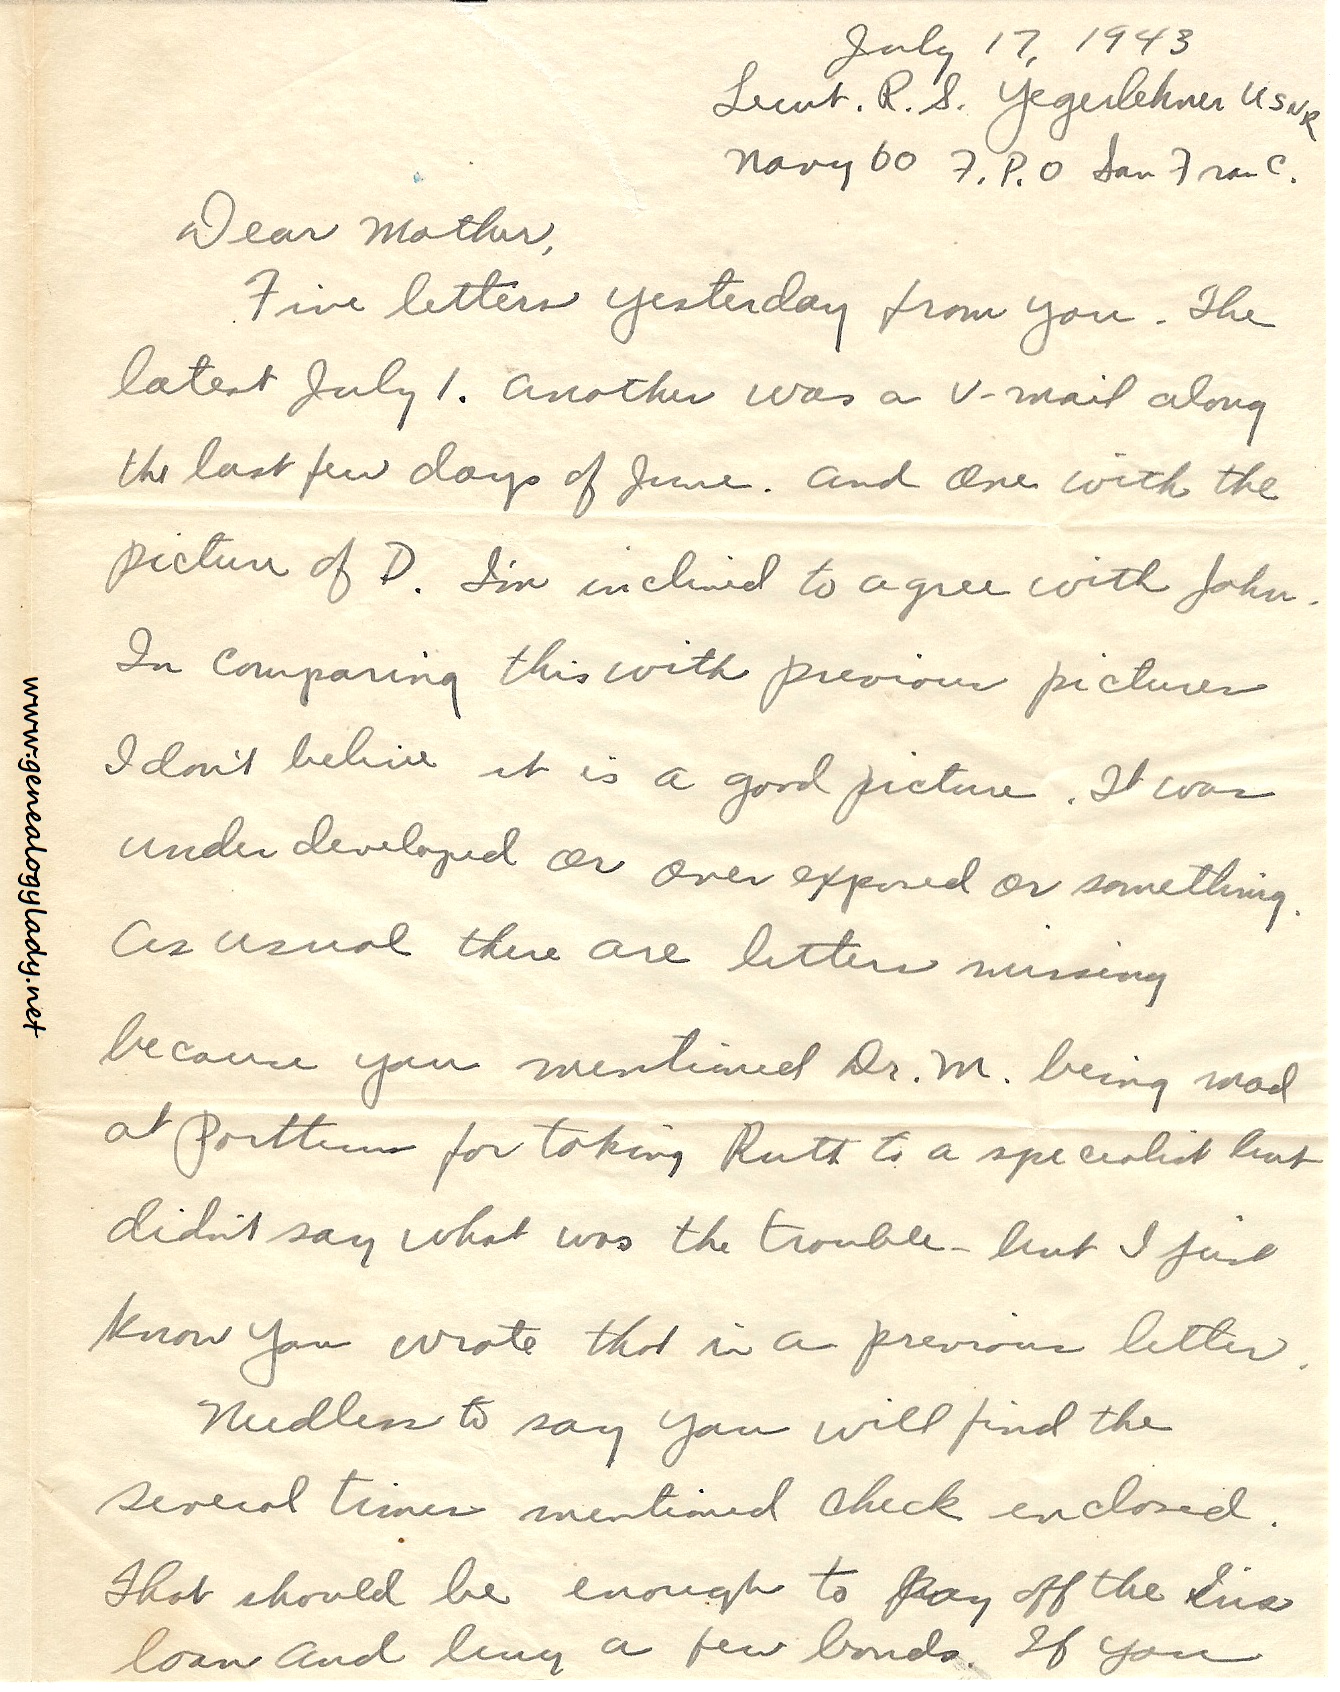 July 17, 1943
Lieut. R. S. Yegerlehner USNR
Navy 60 F.P.O San Fran C.
Dear Mother,
Five letters yesterday from you. The
latest July 1. Another was a V-mail along
the last few days of June. And one with the
picture of D. I'm inclined to agree with John.
In comparing this with previous pictures
I don't believe it is a good picture. It was
under developed or over exposed or something.
As usual there are letters missing
because you mentioned Dr. M. being mad
at for taking Ruth to a specialist but
didn't say what was the trouble - but I just
know you wrote that in a previous letter.
Needless to say you will find the
several times mentioned check enclosed.
That should be enough to pay off the Ins
loan and buy a few bonds. If you
www.genealogylady.net